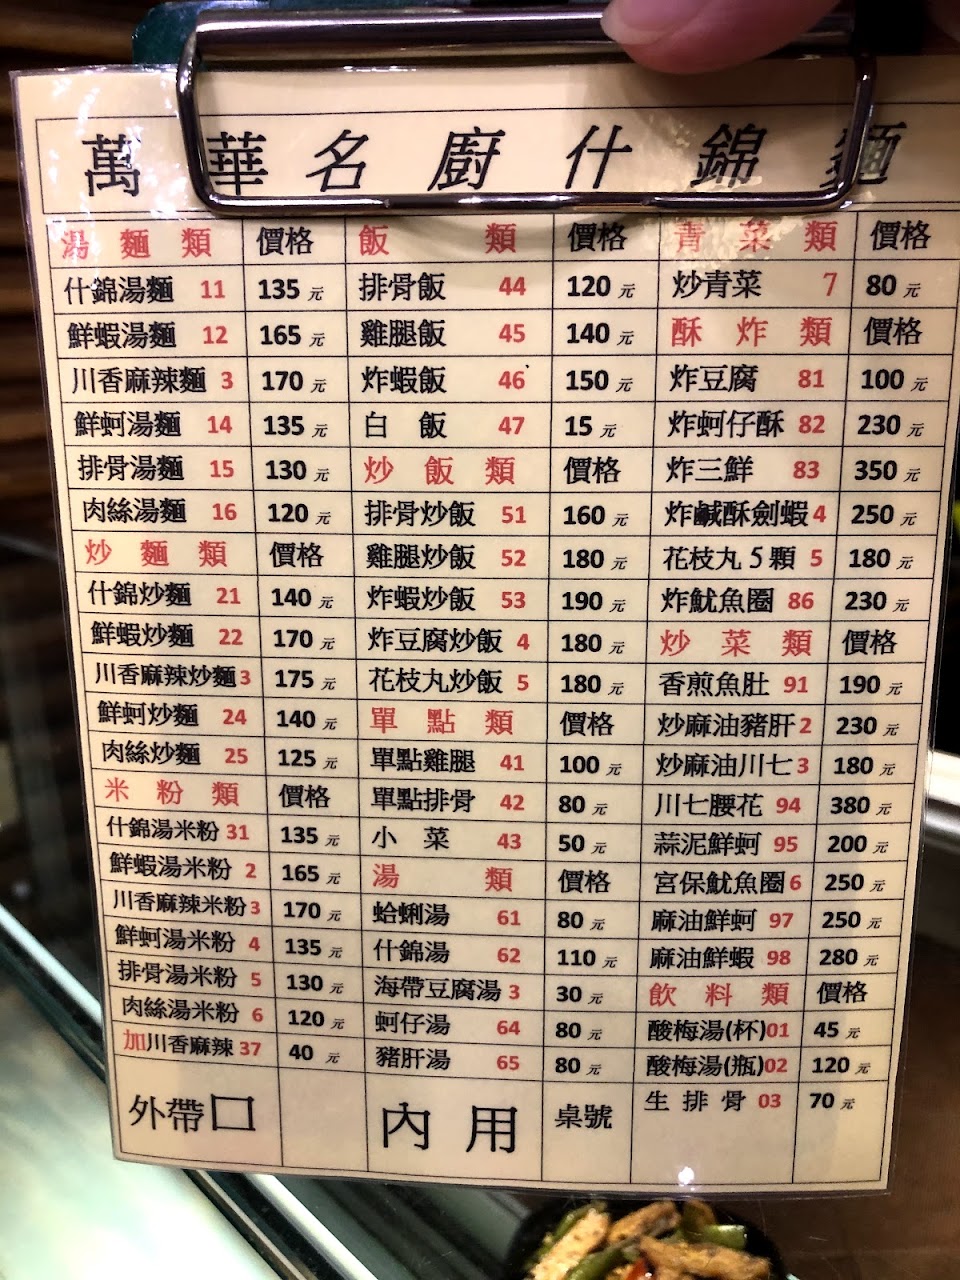 萬華名廚什錦麵
湯麵類 價格 飯類 價格 青菜類 價格
什錦湯麵 11 135元 排骨飯 44 120元 炒青菜 7 80元
鮮蝦湯麵 12 165元 雞腿飯 45 140元 酥炸類 價格
川香麻辣麵 3 170元 炸蝦飯 46 150元 炸豆腐 81 100元
鮮蚵湯麵 14 135元 白飯 47 15元 炸蚵仔酥 82 230元
排骨湯麵 15 130元 炒飯類 價格 炸三鮮 83 350元
肉絲湯麵 16 120元 排骨炒飯 51 160元 炸鹹酥劍蝦 4 250元
炒麵類 價格 雞腿炒飯 52 180元 花枝丸5顆 5 180元
什錦炒麵 21 140元 炸蝦炒飯 53 190元 炸魷魚圈 86 230元
鮮蝦炒麵 22 170元 炸豆腐炒飯 4 180元 炒菜類 價格
川香麻辣炒麵 3 175元 花枝丸炒飯 5 180元 香煎魚肚 91 190元
鮮蚵炒麵 24 140元 單點類 價格 炒麻油豬肝 2 230元
肉絲炒麵 25 125元 單點雞腿 41 100元 炒麻油川七 3 180元
米粉類 價格 單點排骨 42 80元 川七腰花 94 380元
什錦湯米粉 31 135元 小菜 43 50元 蒜泥鮮蚵 95 200元
鮮蝦湯米粉 2 165元 湯類 價格 宮保魷魚圈 6 250元
川香麻辣米粉 3 170元 蛤蜊湯 61 80元 麻油鮮蚵 97 250元
鮮蚵湯米粉 4 135元 什錦湯 62 110元 麻油鮮蝦 98 280元
排骨湯米粉 5 130元 海帶豆腐湯 3 30元 飲料類 價格
肉絲湯米粉 6 120元 蚵仔湯 64 80元 酸梅湯(杯)01 45元
加川香麻辣 37 40元 豬肝湯 65 80元 酸梅湯(瓶)02 120元
外帶口 內用 桌號 生排骨 03 70元